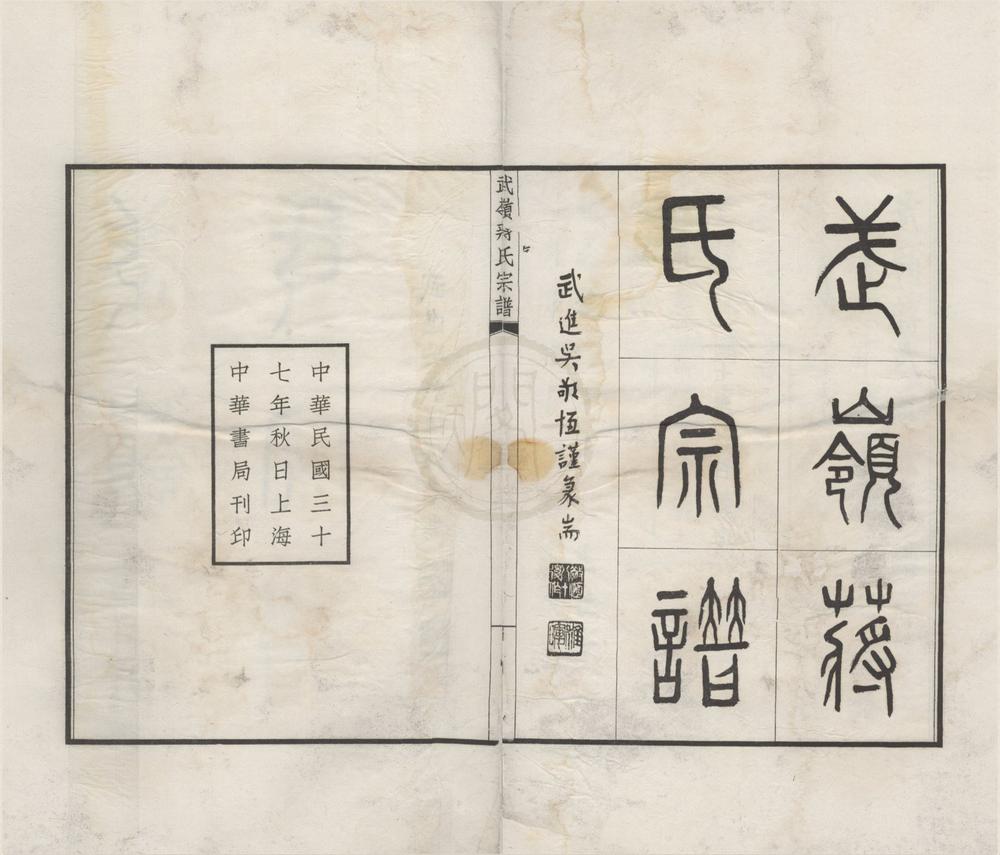 武嶺蔣
氏宗譜
武進吳敬恆謹篆耑
武嶺蔣氏宗譜
中華民國三十
七年秋日上海
中華書局刊印